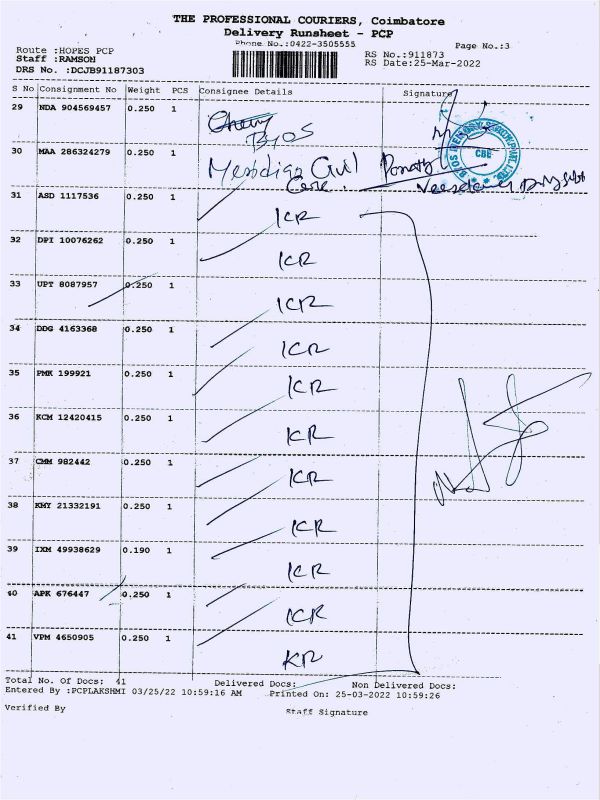 THE PROFESSIONAL COURIERS, Coimbatore
Delivery Runsheet - PCP
Phone No.:0422-3505555
Page No.:3
Route :HOPES PCP
Staff :RAMSON
DRS No. :DCJB91187303
RS No.:911873
RS Date:25-Mar-2022
S No Consignment No Weight PCS Consignee Details Signature
29 NDA 904569457 0.250 1
BYOS
30 MAA 286324279 0.250 1
CBE
31 ASD 1117536 0.250 1
ICR
32 DPI 10076262 0.250 1
ICR
33 UPT 8087957 0.250 1
ICR
34 DDG 4163368 0.250 1
ICR
35 PMK 199921 0.250 1
ICR
36 KCM 12420415 0.250 1
ICR
37 CMM 982442 0.250 1
ICR
38 KMY 21332191 0.250 1
ICR
39 IXM 49938629 0.190 1
ICR
40 APK 676447 0.250 1
ICR
41 VPM 4650905 0.250 1
ICR
Total No. Of Docs: 41 Delivered Docs: Non Delivered Docs:
Entered By :PCPLAKSHMI 03/25/22 10:59:16 AM Printed On: 25-03-2022 10:59:26
Verified By Staff Signature